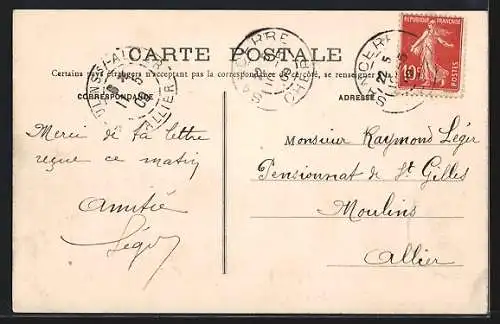 CARTE POSTALE
Certains pays étrangers n'acceptant pas la correspondance de ce côté, se renseigner
CORRESPONDANCE
ADRESSE
RÉPUBLIQUE FRANÇAISE
10
POSTES
SANCERRE
CHER
SANCERRE
ALLIER
Merci de ta lettre
reçue ce matin
Amitié
Léger
Monsieur Raymond Léger
Pensionnat de St Gilles
Moulins
Allier